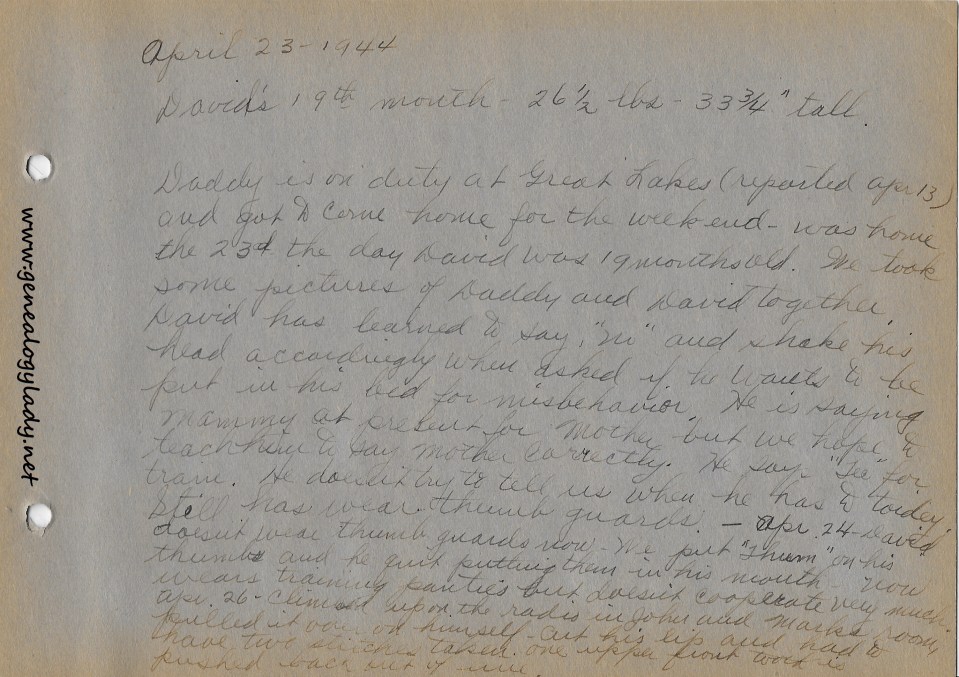 April 23-1944
David's 19th month - 26 1/2 lbs - 33 3/4" tall.
Daddy is on duty at Great Lakes (reported Apr 13)
and got to come home for the week end - was home
the 23rd the day David was 19 months old. We took
some pictures of Daddy and David together
David has learned to say, "ni" and shake his
head accordingly when asked if he wants to be
put in his bed for misbehavior. He is saying
Mammy at present for Mother, but we hope to
teach him to say Mother correctly. He says "Tee" for
train. He doesn't try to tell us when he has to toidey.
Still has wear thumb guards. - Apr. 24 - David
doesn't wear thumb guards now - We put "Thum" on his
thumbs and he quit putting them in his mouth - now
wears training panties but doesn't cooperate very much.
Apr. 26 - Climbed upon the radio in John and Marks room,
pulled it over on himself - cut his lip and had to
have two stitches taken. one upper front tooth is
pushed back out of line.
www.genealogylady.net